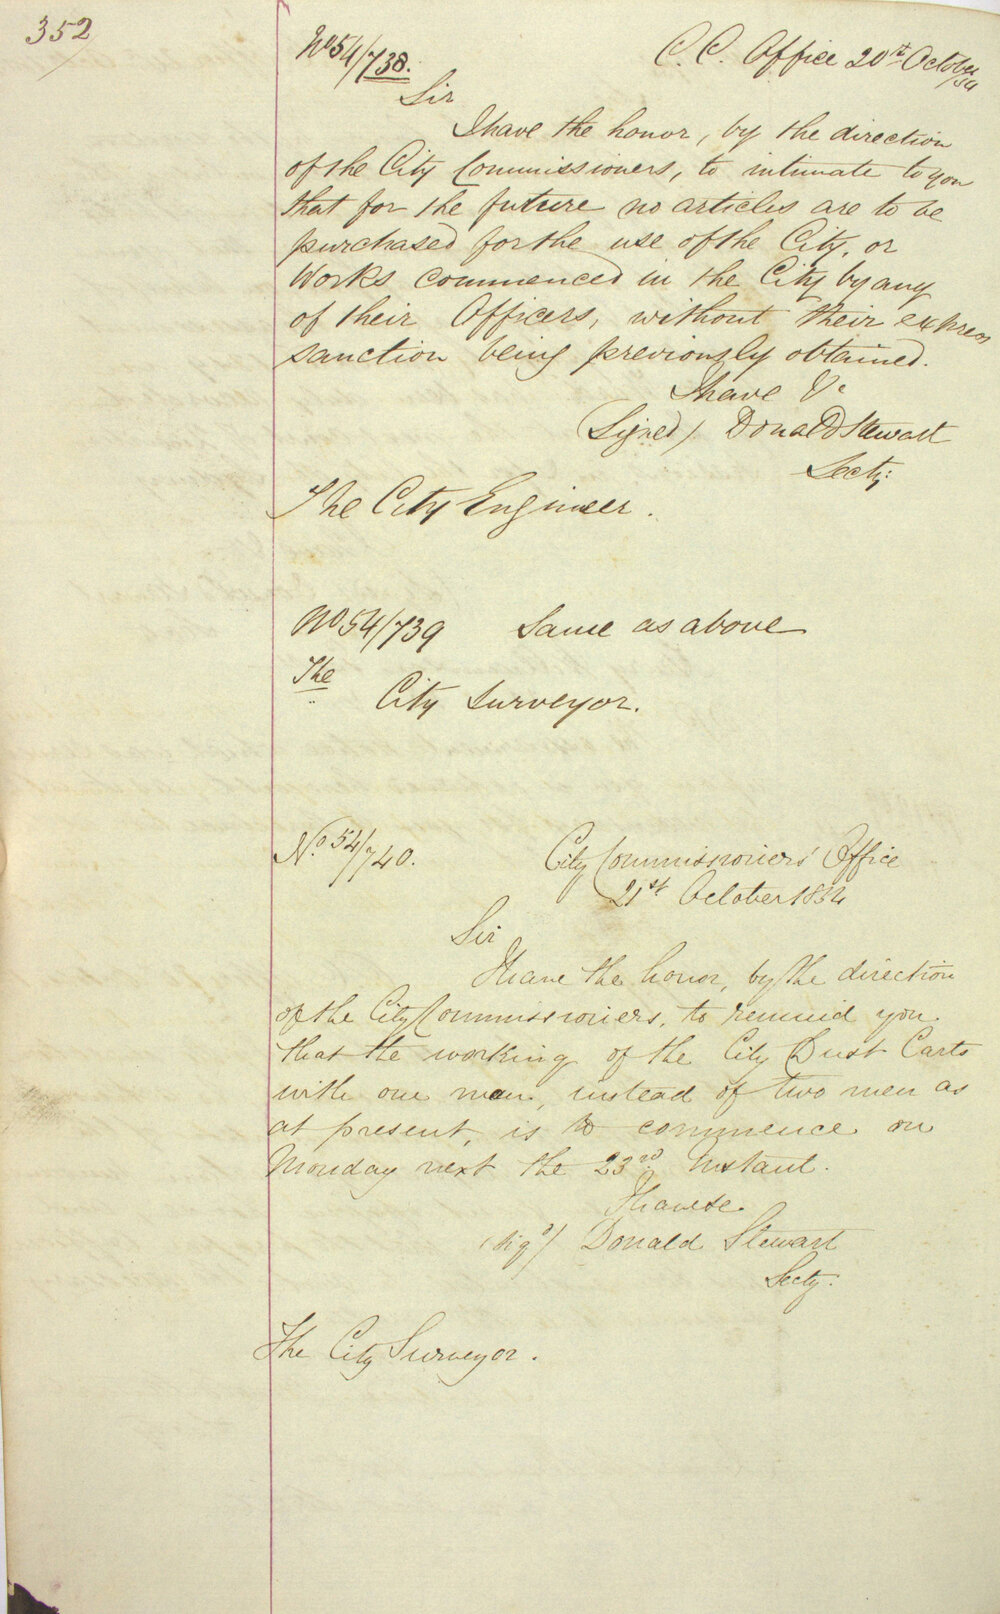 352
No 54/738. C. C. Office 20th October /54
Sir
I have the honor, by the direction
of the City Commissioners, to intimate to you
that for the future no articles are to be
purchased for the use of the City, or
Works commenced in the City by any
of their Officers, without their express
sanction being previously obtained.
I have &c
(Signed) Donald Stewart
Secty:
The City Engineer.
No 54/739 Same as above
The
City Surveyor.
No. 54/740. City Commissioners' Office
21st October 1854
Sir
I have the honor, by the direction
of the City Commissioners, to remind you
that the working of the City Dust Carts
with one man, instead of two men as
at present, is to commence on
Monday next the 23rd Instant.
I have &c.
(Sigd) Donald Stewart
Secty:
The City Surveyor.